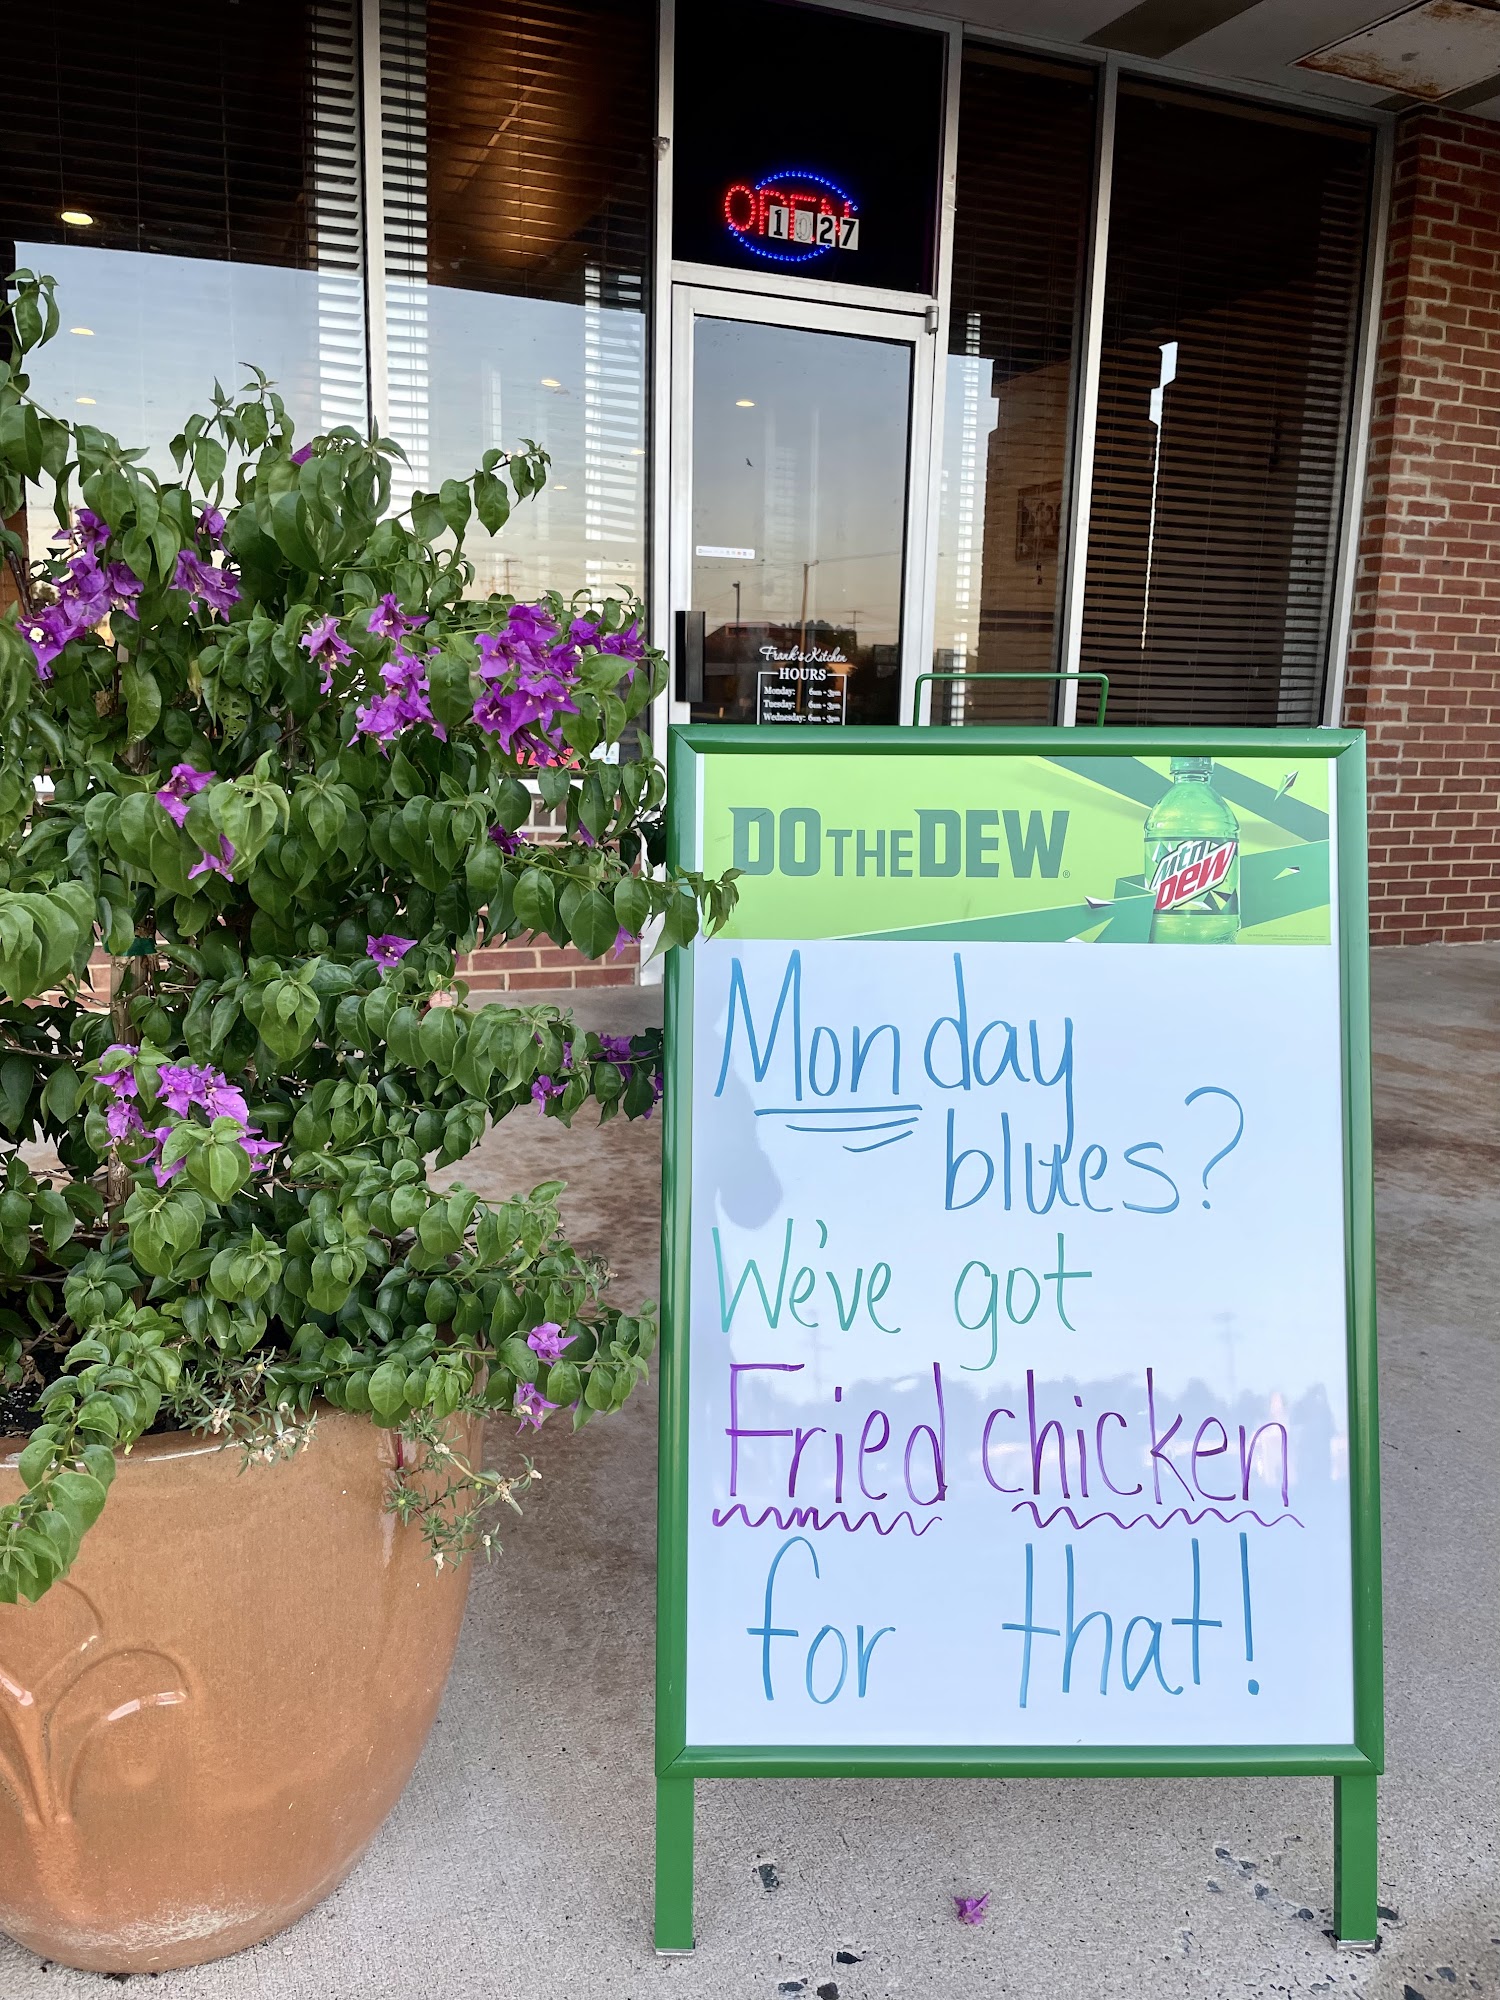 OPEN
1027
Frank's Kitchen
HOURS
Monday: 6am - 3pm
Tuesday: 6am - 3pm
Wednesday: 6am - 3pm
DO THE DEW®
Mtn
DEW
Monday
blues?
We've got
Fried chicken
for that!